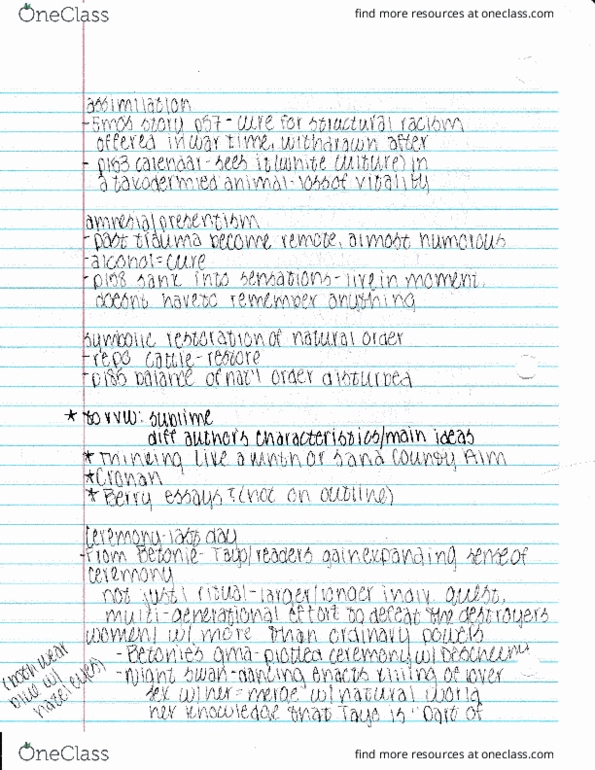 OneClass
find more resources at oneclass.com
assimilation
- Emo's story p57 - cure for structural racism
offered in war time, withdrawn after
- p163 calendar - sees it (white culture) in
a taxodermied animal - loss of vitality
amnesia/presentism
- past trauma become remote, almost humorous
- alcohol = cure
- p168 sank into sensations - live in moment,
doesnt have to remember anything
symbolic restoration of natural order
- repo cattle - restore
- p185 balance of nat'l order disturbed
* to rvw: sublime
diff authors characteristics/main ideas
* Thinking Like a Mntn or Sand County Alm
* Cronan
* Berry essays (not on outline)
Ceremony - last day
- From Betonie - Tayo/readers gain expanding sense of
ceremony
not just ritual - larger/longer indiv. quest,
multi-generational effort to defeat the destroyers
women w/ more than ordinary powers
- Betonies gma - plotted ceremony w/ Descheeny
- Night swan - dancing enacts killing of lover
(both wear
blue w/
hazel eyes)
sex w/ her = merge w/ natural world
her knowledge that Tayo is "part of
OneClass
find more resources at oneclass.com